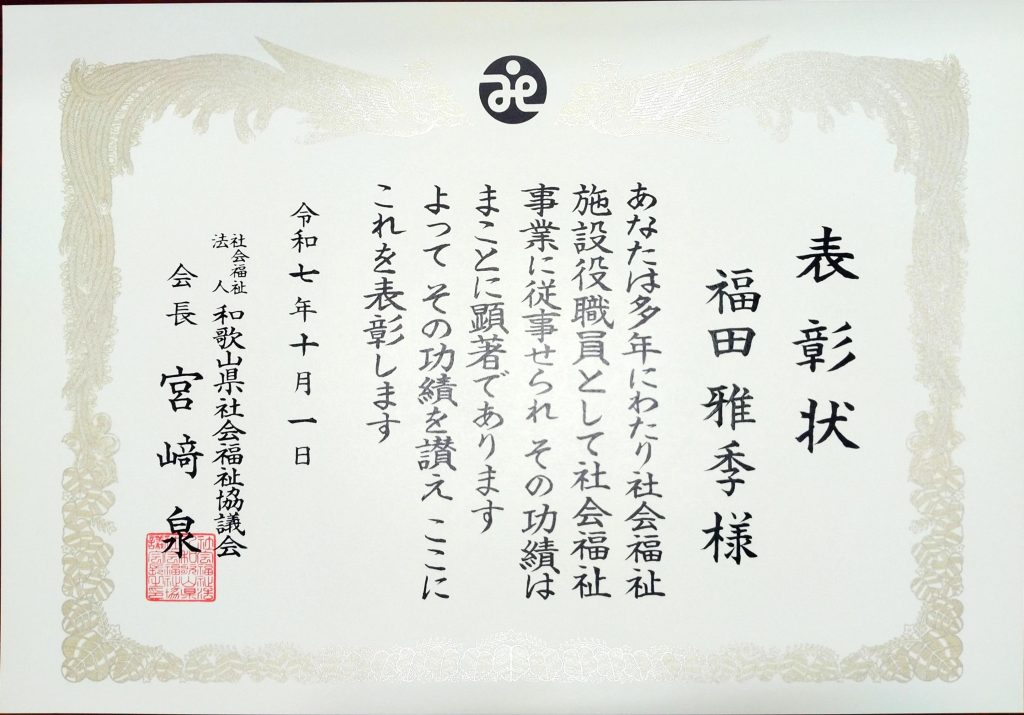 表彰状
福田雅季様
あなたは多年にわたり社会福祉
施設役職員として社会福祉
事業に従事せられ その功績は
まことに顕著であります
よって その功績を讃え ここに
これを表彰します
令和七年十月一日
社会福祉法人 和歌山県社会福祉協議会
会長 宮﨑 泉